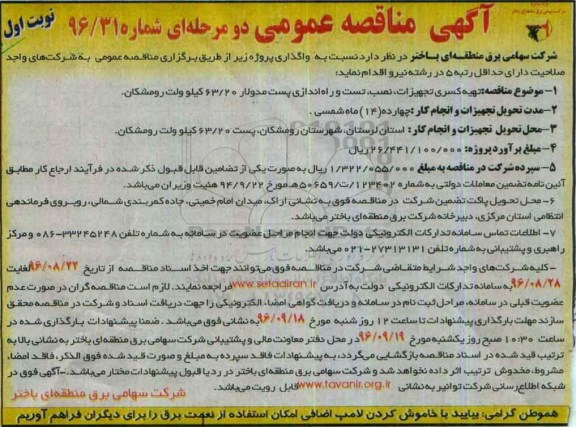 آگهی مناقصه عمومی دو مرحله‌ای شماره ۹۶/۳۱
نوبت اول
شرکت سهامی برق منطقه‌ای باختر در نظر دارد نسبت به واگذاری پروژه زیر از طریق برگزاری مناقصه عمومی به شرکت‌های واجد
صلاحیت دارای حداقل رتبه ۵ در رشته نیرو اقدام نماید:
۱- موضوع مناقصه: تهیه کسری تجهیزات، نصب، تست و راه‌اندازی پست مدولار ۶۳/۲۰ کیلو ولت رومشکان.
۲- مدت تحویل تجهیزات و انجام کار: چهارده (۱۴) ماه شمسی.
۳- محل تحویل تجهیزات و انجام کار: استان لرستان، شهرستان رومشکان، پست ۶۳/۲۰ کیلو ولت رومشکان.
۴- مبلغ برآورد پروژه: ۲۶/۴۴۱/۱۰۰/۰۰۰ ریال
۵- سپرده شرکت در مناقصه به مبلغ ۱/۳۲۲/۰۵۵/۰۰۰ ریال به صورت یکی از تضامین قابل قبول ذکر شده در فرآیند ارجاع کار مطابق
آئین نامه تضمین معاملات دولتی به شماره ۱۲۳۴۰۲/ت۵۰۶۵۹ه‍ مورخ ۹۴/۹/۲۲ هیئت وزیران می‌باشد.
۶- محل تحویل پاکت تضمین شرکت در مناقصه فوق به نشانی اراک، میدان امام خمینی، جاده کمربندی شمالی، روبروی فرماندهی
انتظامی استان مرکزی، دبیرخانه شرکت برق منطقه‌ای باختر می‌باشد.
۷- اطلاعات تماس سامانه تدارکات الکترونیکی دولت جهت انجام مراحل عضویت در سامانه به شماره تلفن ۳۳۲۴۵۲۴۸-۰۸۶ و مرکز
راهبری و پشتیبانی به شماره تلفن ۲۷۳۱۳۱۳۱-۰۲۱ می‌باشد.
- کلیه شرکت‌های واجد شرایط متقاضی شرکت در مناقصه فوق می‌توانند جهت اخذ اسناد مناقصه از تاریخ ۹۶/۰۸/۲۲ لغایت
۹۶/۰۸/۲۸ به سامانه تدارکات الکترونیکی دولت به آدرس www.setadiran.ir مراجعه نمایند. لازم است مناقصه گران در صورت عدم
عضویت قبلی در سامانه، مراحل ثبت نام در سامانه و دریافت گواهی امضاء الکترونیکی را جهت دریافت اسناد و شرکت در مناقصه محقق
سازند مهلت بارگذاری پیشنهادات تا ساعت ۱۲ روز شنبه مورخ ۹۶/۰۹/۱۸ به نشانی فوق می‌باشد. ضمنا پیشنهادات بارگذاری شده در
ساعت ۱۰:۳۰ صبح روز یکشنبه مورخ ۹۶/۰۹/۱۹ در محل دفتر معاونت مالی و پشتیبانی شرکت سهامی برق منطقه‌ای باختر به نشانی بالا به
ترتیب قید شده در اسناد مناقصه بازگشایی می‌گردد، به پیشنهادات فاقد سپرده به مبلغ و صورت قید شده فوق الذکر، فاقد امضاء،
مشروط، مخدوش ترتیب اثر داده نخواهد شد و شرکت سهامی برق منطقه‌ای باختر در رد یا قبول پیشنهادات مختار می‌باشد. - آگهی فوق در
شبکه اطلاع‌رسانی شرکت توانیر به نشانی www.tavanir.org.ir قابل رویت می‌باشد.
شرکت سهامی برق منطقه‌ای باختر
هموطن گرامی: بیایید با خاموش کردن لامپ اضافی امکان استفاده از نعمت برق را برای دیگران فراهم آوریم